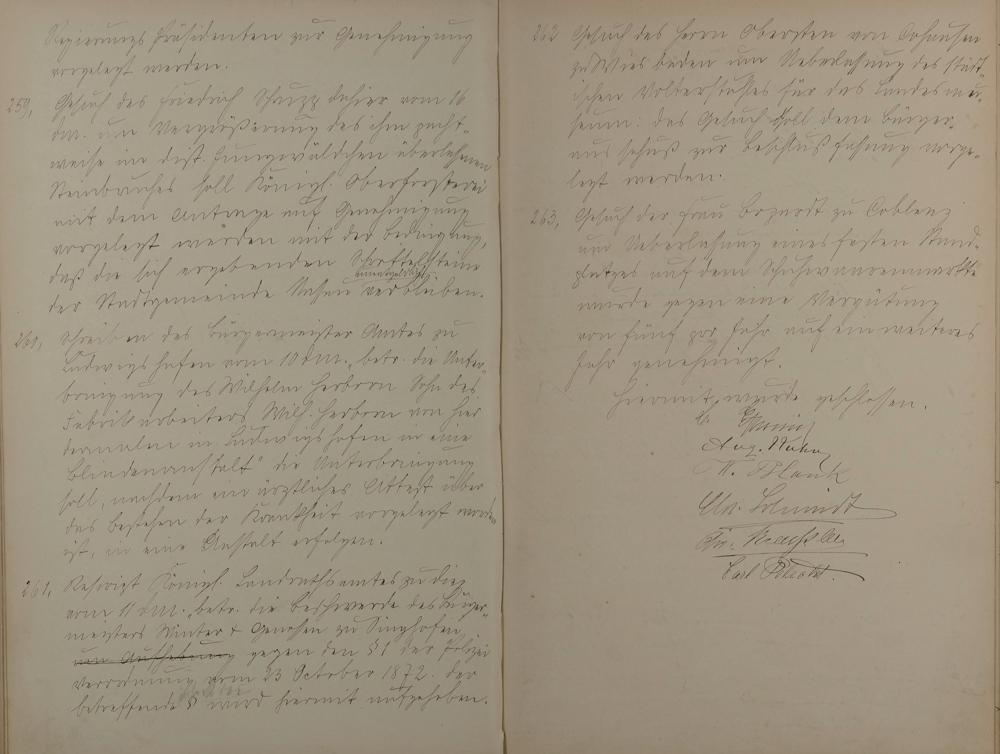 Regierungs Präsidenten zur Genehmigung
vorgelegt werden.
259, Gesuch des Friedrich Schupp dahier vom 16
dM. um Vergrößerung des ihm pacht-
weise im Dist. Jungewäldchen überlassenen
Steinbruches soll Königl. Oberförsterei
mit dem Antrage auf Genehmigung
vorgelegt werden mit der Bedingung,
daß die sich ergebenden steine
unentgeldlich
der Stadtgemeinde Nassau verbleiben.
260, Schreiben des Bürgermeister Amtes zu
Ludwigshafen vom 10 dM. „betr. die Unter-
bringung des Wilhelm Herborn Sohn des
Fabrikarbeiters Wilh. Herborn von hier
dermalen in Ludwigshafen in eine
Blindenanstalt" die Unterbringung
soll, nachdem ein ärztliches Attest über
das Bestehen der Krankheit vorgelegt worden
ist, in eine Anstalt erfolgen.
261, Rescript Königl. Landrathsamtes zu Diez
vom 11 dM. „betr. die Beschwerde des Bürger-
meisters Winter & Genossen zu Singhofen
um Aufhebung gegen den § 1 der Polizei
Verordnung vom 23 October 1872. der
betreffende § wird hiermit aufgehoben.
262 Gesuch des Herrn Obersten von Cohausen
zu Wiesbaden um Ueberlassung des städt-
ischen für das Landesmu-
seum: das Gesuch soll dem Bürger-
ausschuß zur Beschlußfassung vorge-
legt werden.
263, Gesuch der Frau zu Coblenz
um Ueberlassung eines festen Stand-
platzes auf dem Schuhwaarenmarkte
wurde gegen eine Vergütung
von fünf pro Jahr auf ein weiteres
Jahr genehmigt.
Hiermit wurde geschlossen.
Aug. Kuhn
W. Blank
Chr. Schmidt
Carl